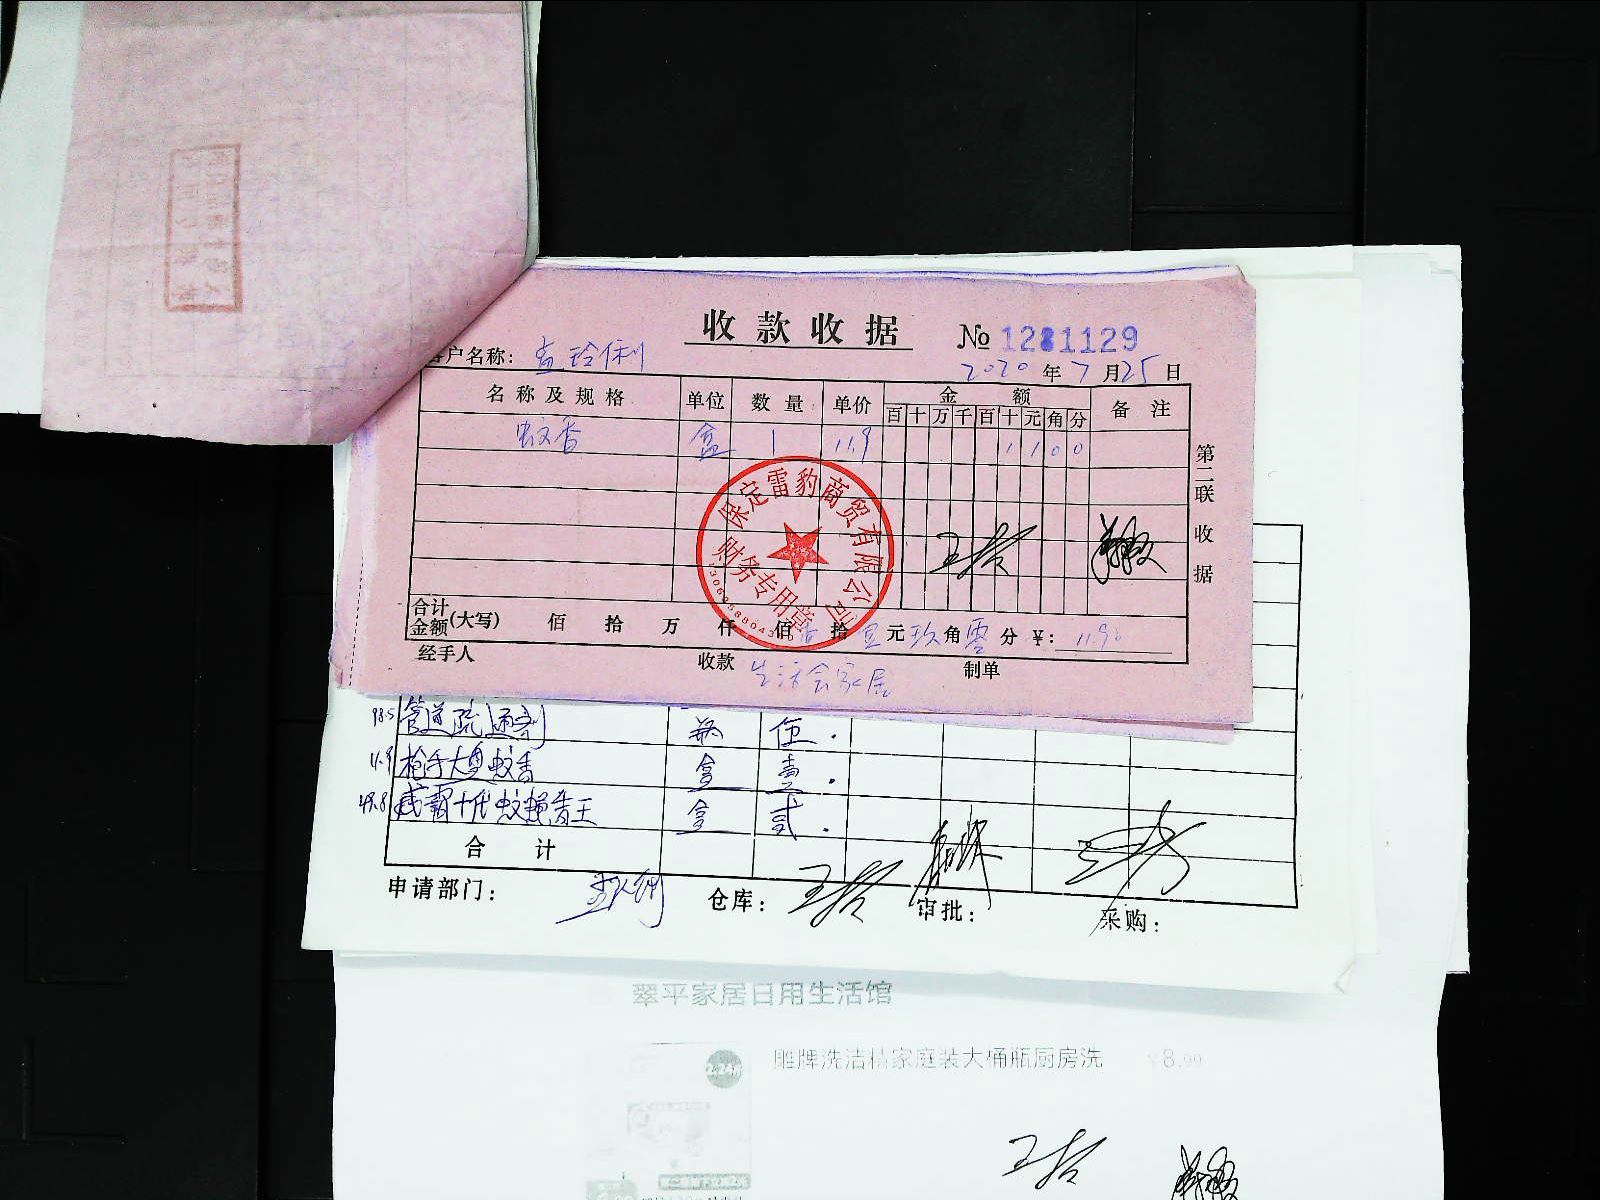 收款收据 № 1281129
客户名称：
2020 年 7 月 25 日
名称及规格 单位 数量 单价 金额 备注
百 十 万 千 百 十 元 角 分
蚊香 盒 1 11.9 1 1 0 0
第二联 收据
保定雷豹商贸有限公司
财务专用章
合计金额(大写) 佰 拾 万 仟 佰 壹 拾 壹 元 玖 角 零 分 ¥: 11.90
经手人 收款 生活会家居 制单
98.5 管道疏通剂 瓶 伍.
11.9 枪手大盘蚊香 盒 壹.
49.8 威霸十代蚊蝇香王 盒 贰.
合计
申请部门: 仓库: 审批: 采购:
翠平家居日用生活馆
雕牌洗洁精家庭装大桶瓶厨房洗 ¥8.99